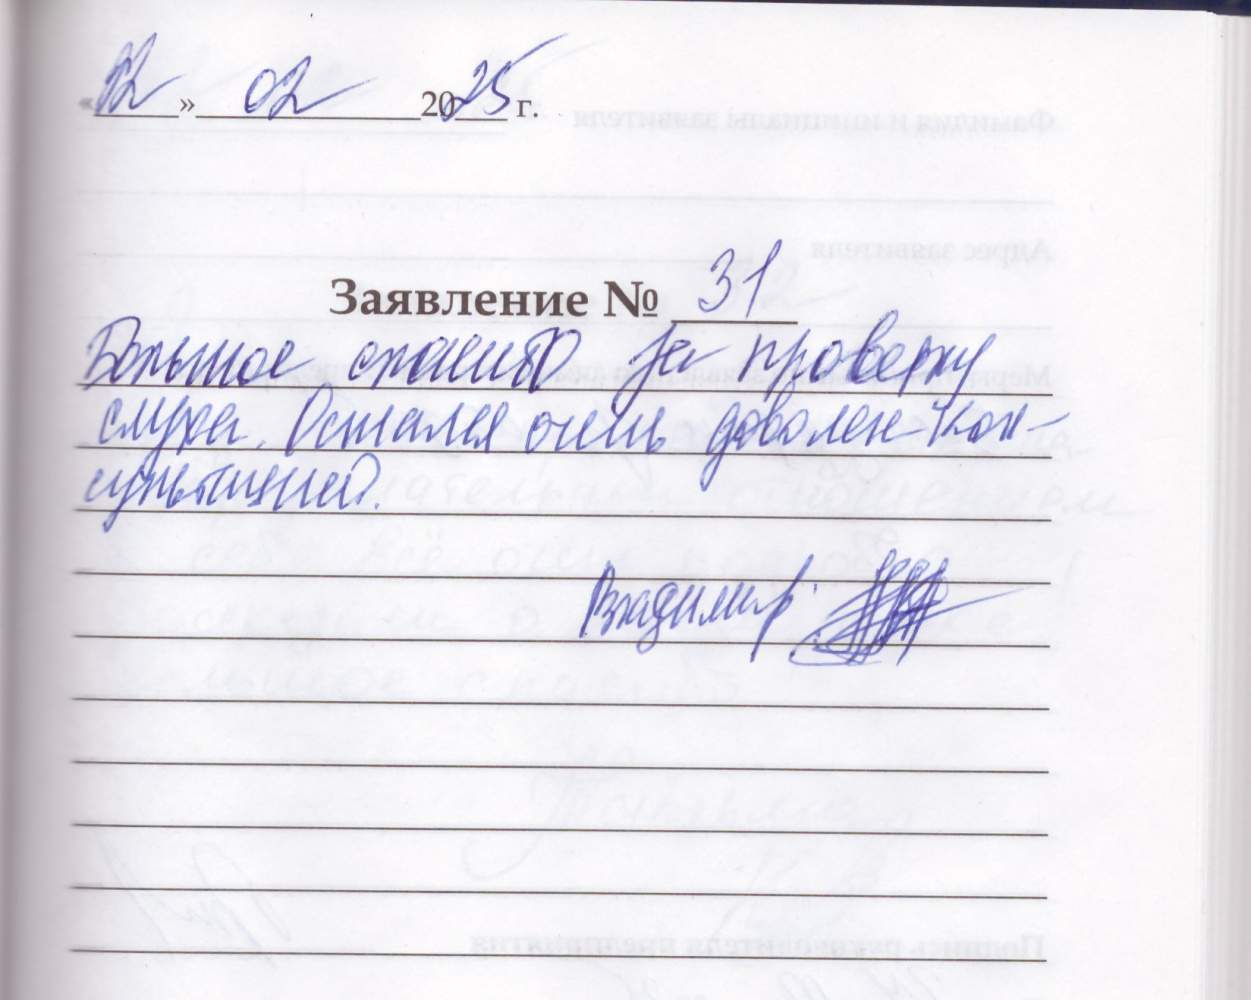 «12» 02 2025 г.
Заявление № 31
Большое спасибо за проверку
слуха. Остался очень доволен кон-
сультацией.
Владимир.